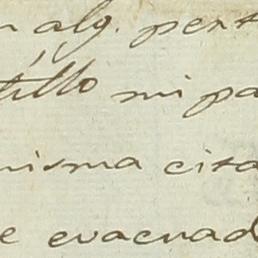 alg. pers
tillo mi pa
misma cita
e evacuad